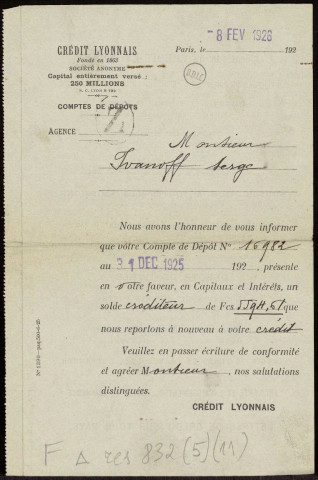 CRÉDIT LYONNAIS
Fondé en 1863
SOCIÉTÉ ANONYME
Capital entièrement versé :
250 MILLIONS
COMPTES DE DÉPÔTS
AGENCE
Paris, le 8 FEV 1926 192
Monsieur
Ivanoff Serge
Nous avons l'honneur de vous informer
que votre Compte de Dépôt No 16982
au 31 DEC 1925 192 , présente
en votre faveur, en Capitaux et Intérêts, un
solde créditeur de Fcs que
nous reportons à nouveau à votre crédit
Veuillez en passer écriture de conformité
et agréer Monsieur, nos salutations
distinguées.
CRÉDIT LYONNAIS
F Δ res 832 (5) (11)